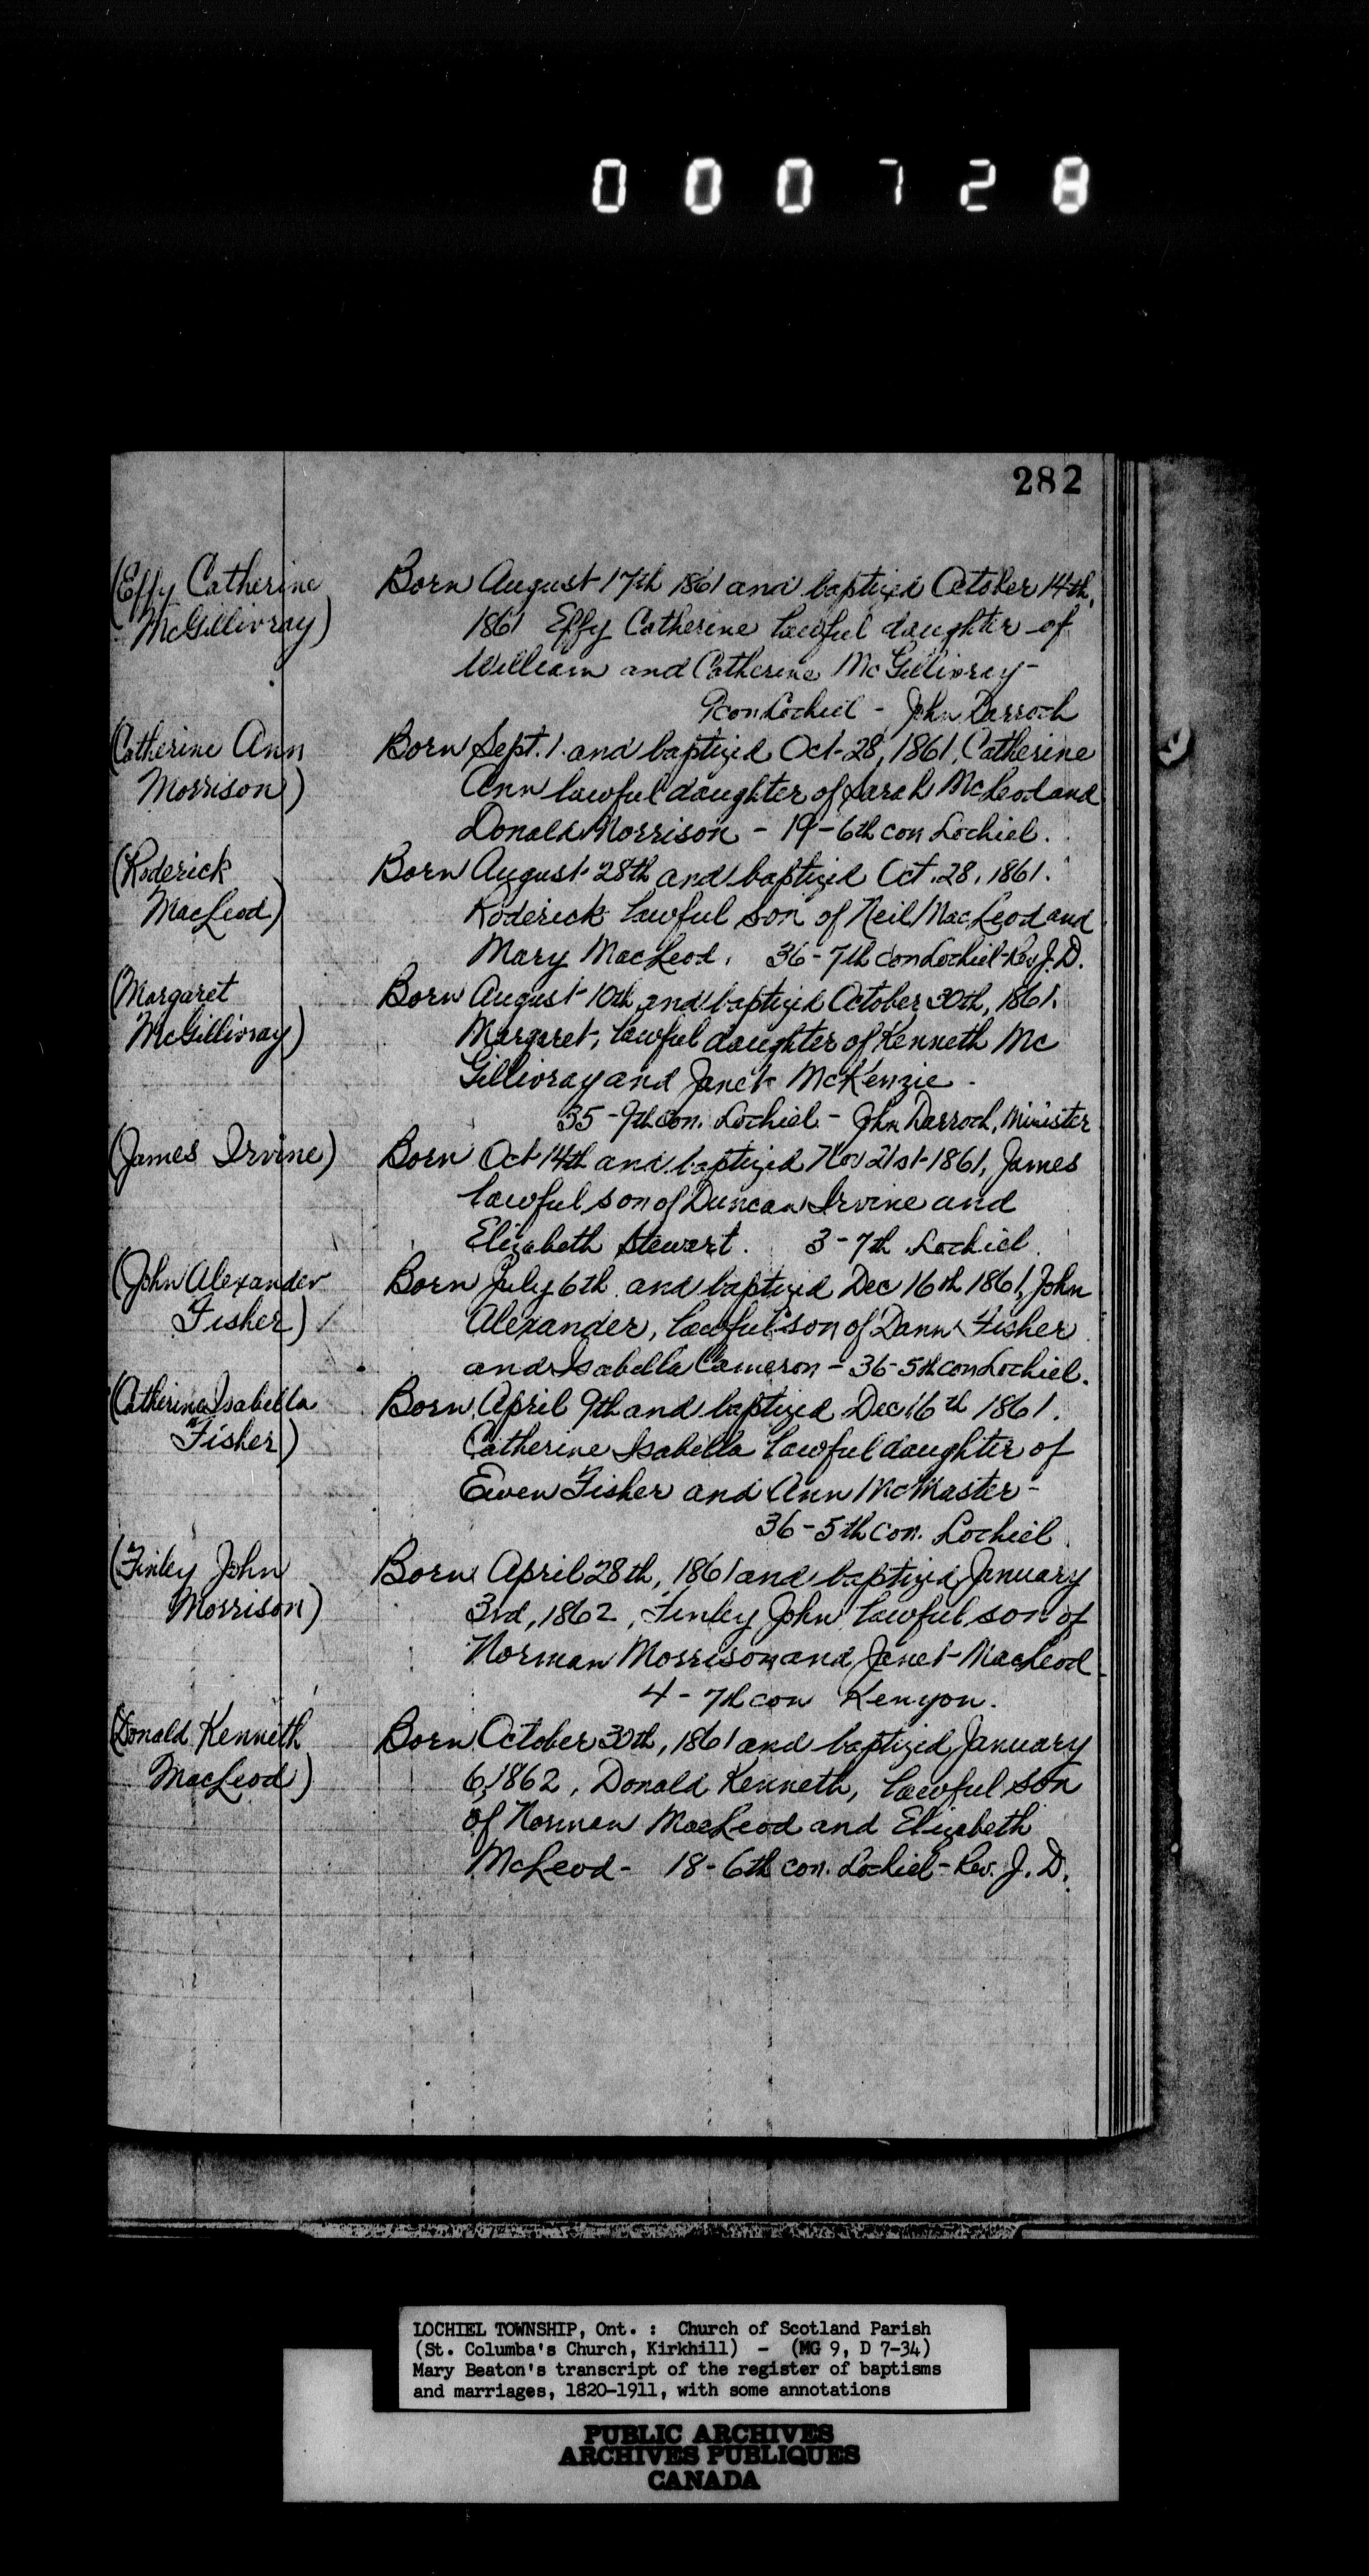 0 0 0 7 2 8
282
(Effy Catherine
McGillivray)
Born August 17th 1861 and baptized October 14th,
1861 Effy Catherine lawful daughter of
William and Catherine McGillivray -
9 con Lochiel - John Darroch
(Catherine Ann
Morrison)
Born Sept. 1. and baptized Oct 28, 1861, Catherine
Ann lawful daughter of Sarah McLeod and
Donald Morrison - 19 - 6th con Lochiel.
(Roderick
MacLeod)
Born August 28th and baptized Oct. 28, 1861.
Roderick lawful son of Neil MacLeod and
Mary MacLeod. 36 - 7th con Lochiel - Rev J. D.
(Margaret
McGillivray)
Born August 10th and baptized October 30th, 1861.
Margaret, lawful daughter of Kenneth Mc
Gillivray and Janet McKenzie -
35 - 9th con. Lochiel - John Darroch, Minister
(James Irvine)
Born Oct 14th and baptized Nov 21st 1861, James
lawful son of Duncan Irvine and
Elizabeth Stewart. 3 - 7th Lochiel.
(John Alexander
Fisher)
Born July 6th and baptized Dec 16th 1861, John
Alexander, lawful son of Fisher
and Isabella Cameron - 36 - 5th con Lochiel.
(Catherine Isabella
Fisher)
Born April 9th and baptized Dec 16th 1861.
Catherine Isabella lawful daughter of
Ewen Fisher and Ann McMaster -
36 - 5th con. Lochiel
(Finley John
Morrison)
Born April 28th, 1861 and baptized January
3rd, 1862, Finley John lawful son of
Norman Morrison and Janet MacLeod
4 - 7th con Kenyon.
(Donald Kenneth
MacLeod)
Born October 30th, 1861 and baptized January
6, 1862, Donald Kenneth, lawful son
of Norman MacLeod and Elizabeth
McLeod - 18 - 6th con. Lochiel - Rev. J. D.
LOCHIEL TOWNSHIP, Ont. : Church of Scotland Parish
(St. Columba's Church, Kirkhill) - (MG 9, D 7-34)
Mary Beaton's transcript of the register of baptisms
and marriages, 1820-1911, with some annotations
PUBLIC ARCHIVES
ARCHIVES PUBLIQUES
CANADA